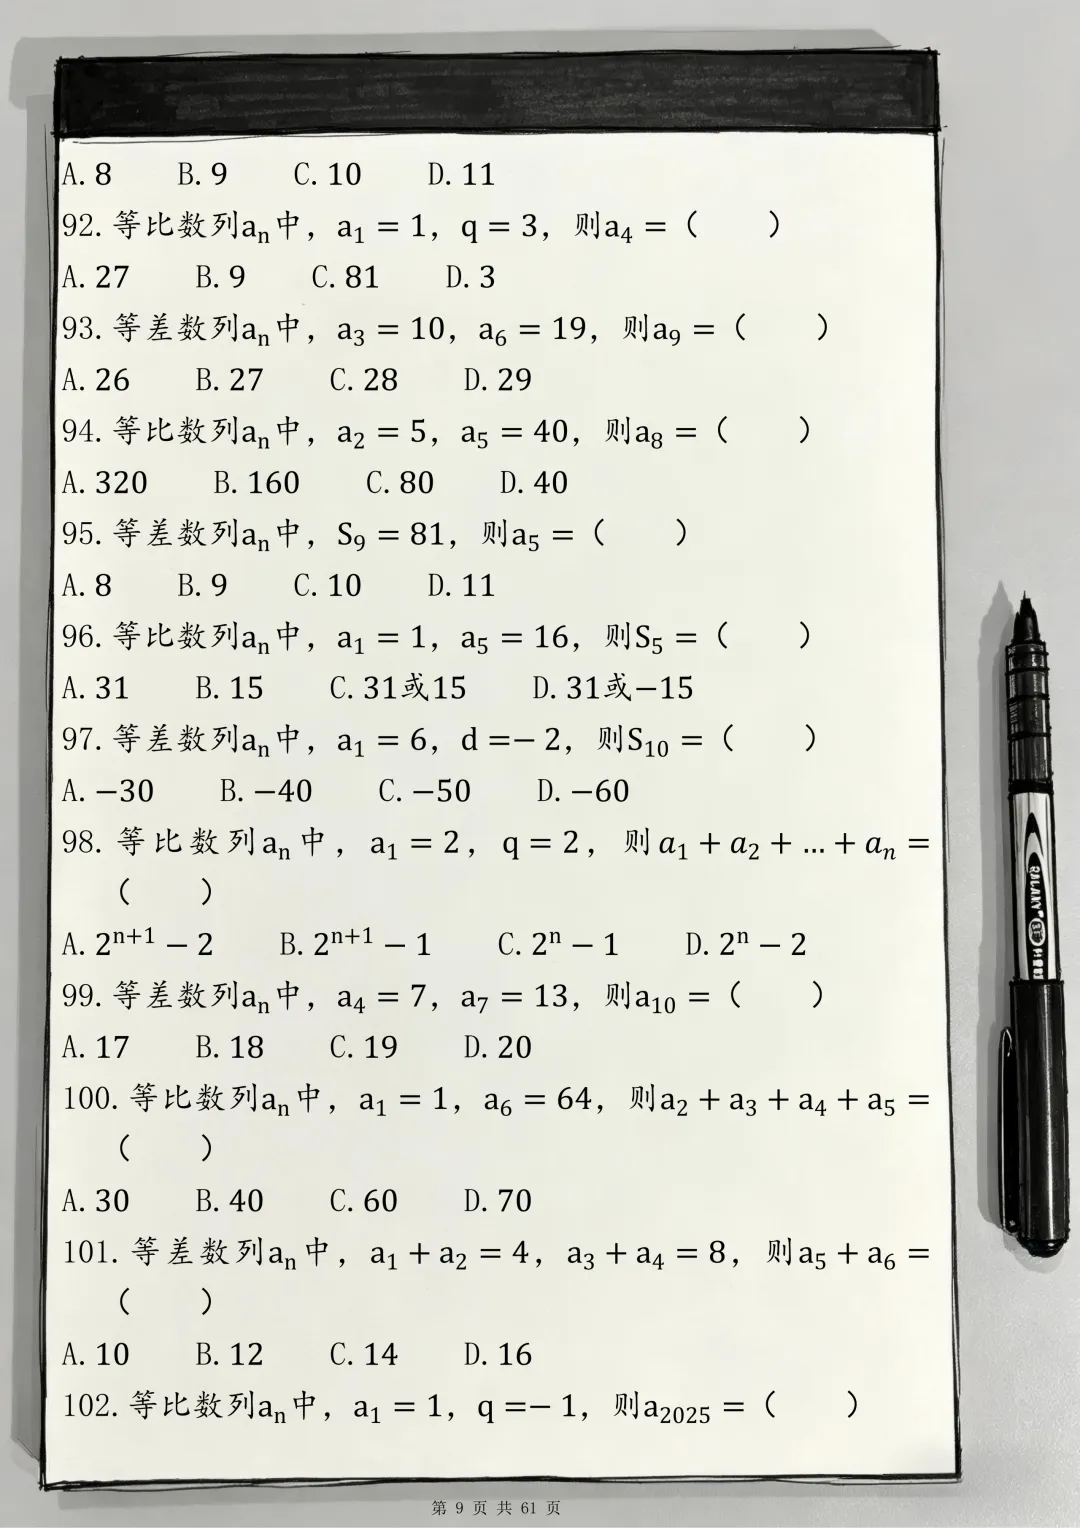 A. 8  B. 9  C. 10  D. 11
92. 等比数列aₙ中，a₁ = 1，q = 3，则a₄ =（  ）
A. 27  B. 9  C. 81  D. 3
93. 等差数列aₙ中，a₃ = 10，a₆ = 19，则a₉ =（  ）
A. 26  B. 27  C. 28  D. 29
94. 等比数列aₙ中，a₂ = 5，a₅ = 40，则a₈ =（  ）
A. 320  B. 160  C. 80  D. 40
95. 等差数列aₙ中，S₉ = 81，则a₅ =（  ）
A. 8  B. 9  C. 10  D. 11
96. 等比数列aₙ中，a₁ = 1，a₅ = 16，则S₅ =（  ）
A. 31  B. 15  C. 31或15  D. 31或−15
97. 等差数列aₙ中，a₁ = 6，d =− 2，则S₁₀ =（  ）
A. −30  B. −40  C. −50  D. −60
98. 等比数列aₙ中，a₁ = 2，q = 2，则a₁ + a₂ + … + aₙ =
（  ）
A. 2ⁿ⁺¹ − 2  B. 2ⁿ⁺¹ − 1  C. 2ⁿ − 1  D. 2ⁿ − 2
99. 等差数列aₙ中，a₄ = 7，a₇ = 13，则a₁₀ =（  ）
A. 17  B. 18  C. 19  D. 20
100. 等比数列aₙ中，a₁ = 1，a₆ = 64，则a₂ + a₃ + a₄ + a₅ =
（  ）
A. 30  B. 40  C. 60  D. 70
101. 等差数列aₙ中，a₁ + a₂ = 4，a₃ + a₄ = 8，则a₅ + a₆ =
（  ）
A. 10  B. 12  C. 14  D. 16
102. 等比数列aₙ中，a₁ = 1，q =− 1，则a₂₀₂₅ =（  ）
第 9 页 共 61 页